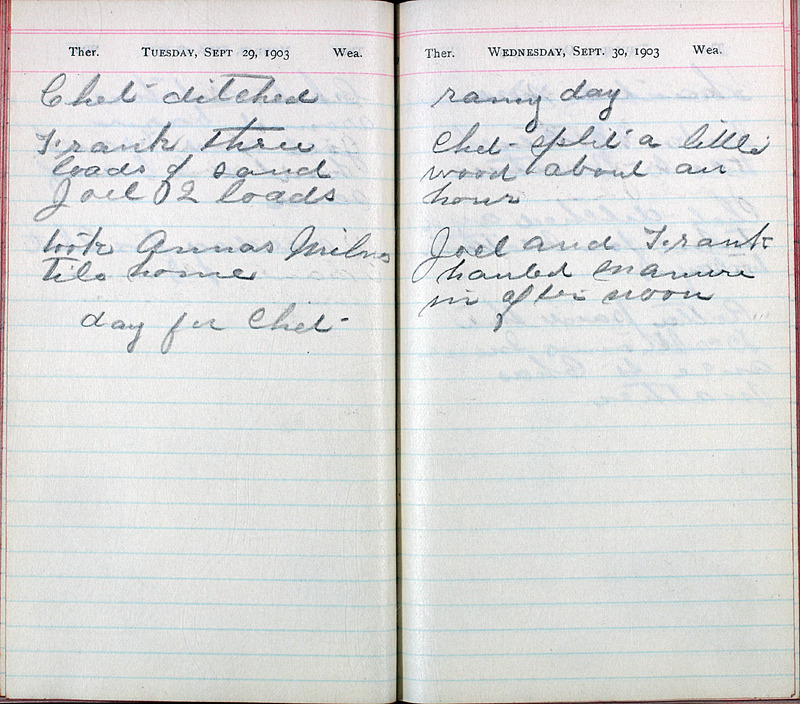 Ther. TUESDAY, SEPT 29, 1903 Wea.
Chet ditched
Frank three
loads of sand
Joel 2 loads
took Annas Milns
tile home
day for Chet
Ther. WEDNESDAY, SEPT. 30, 1903 Wea.
rainy day
Chet split a little
wood about an
hour
Joel and Frank
hauled manure
in after noon